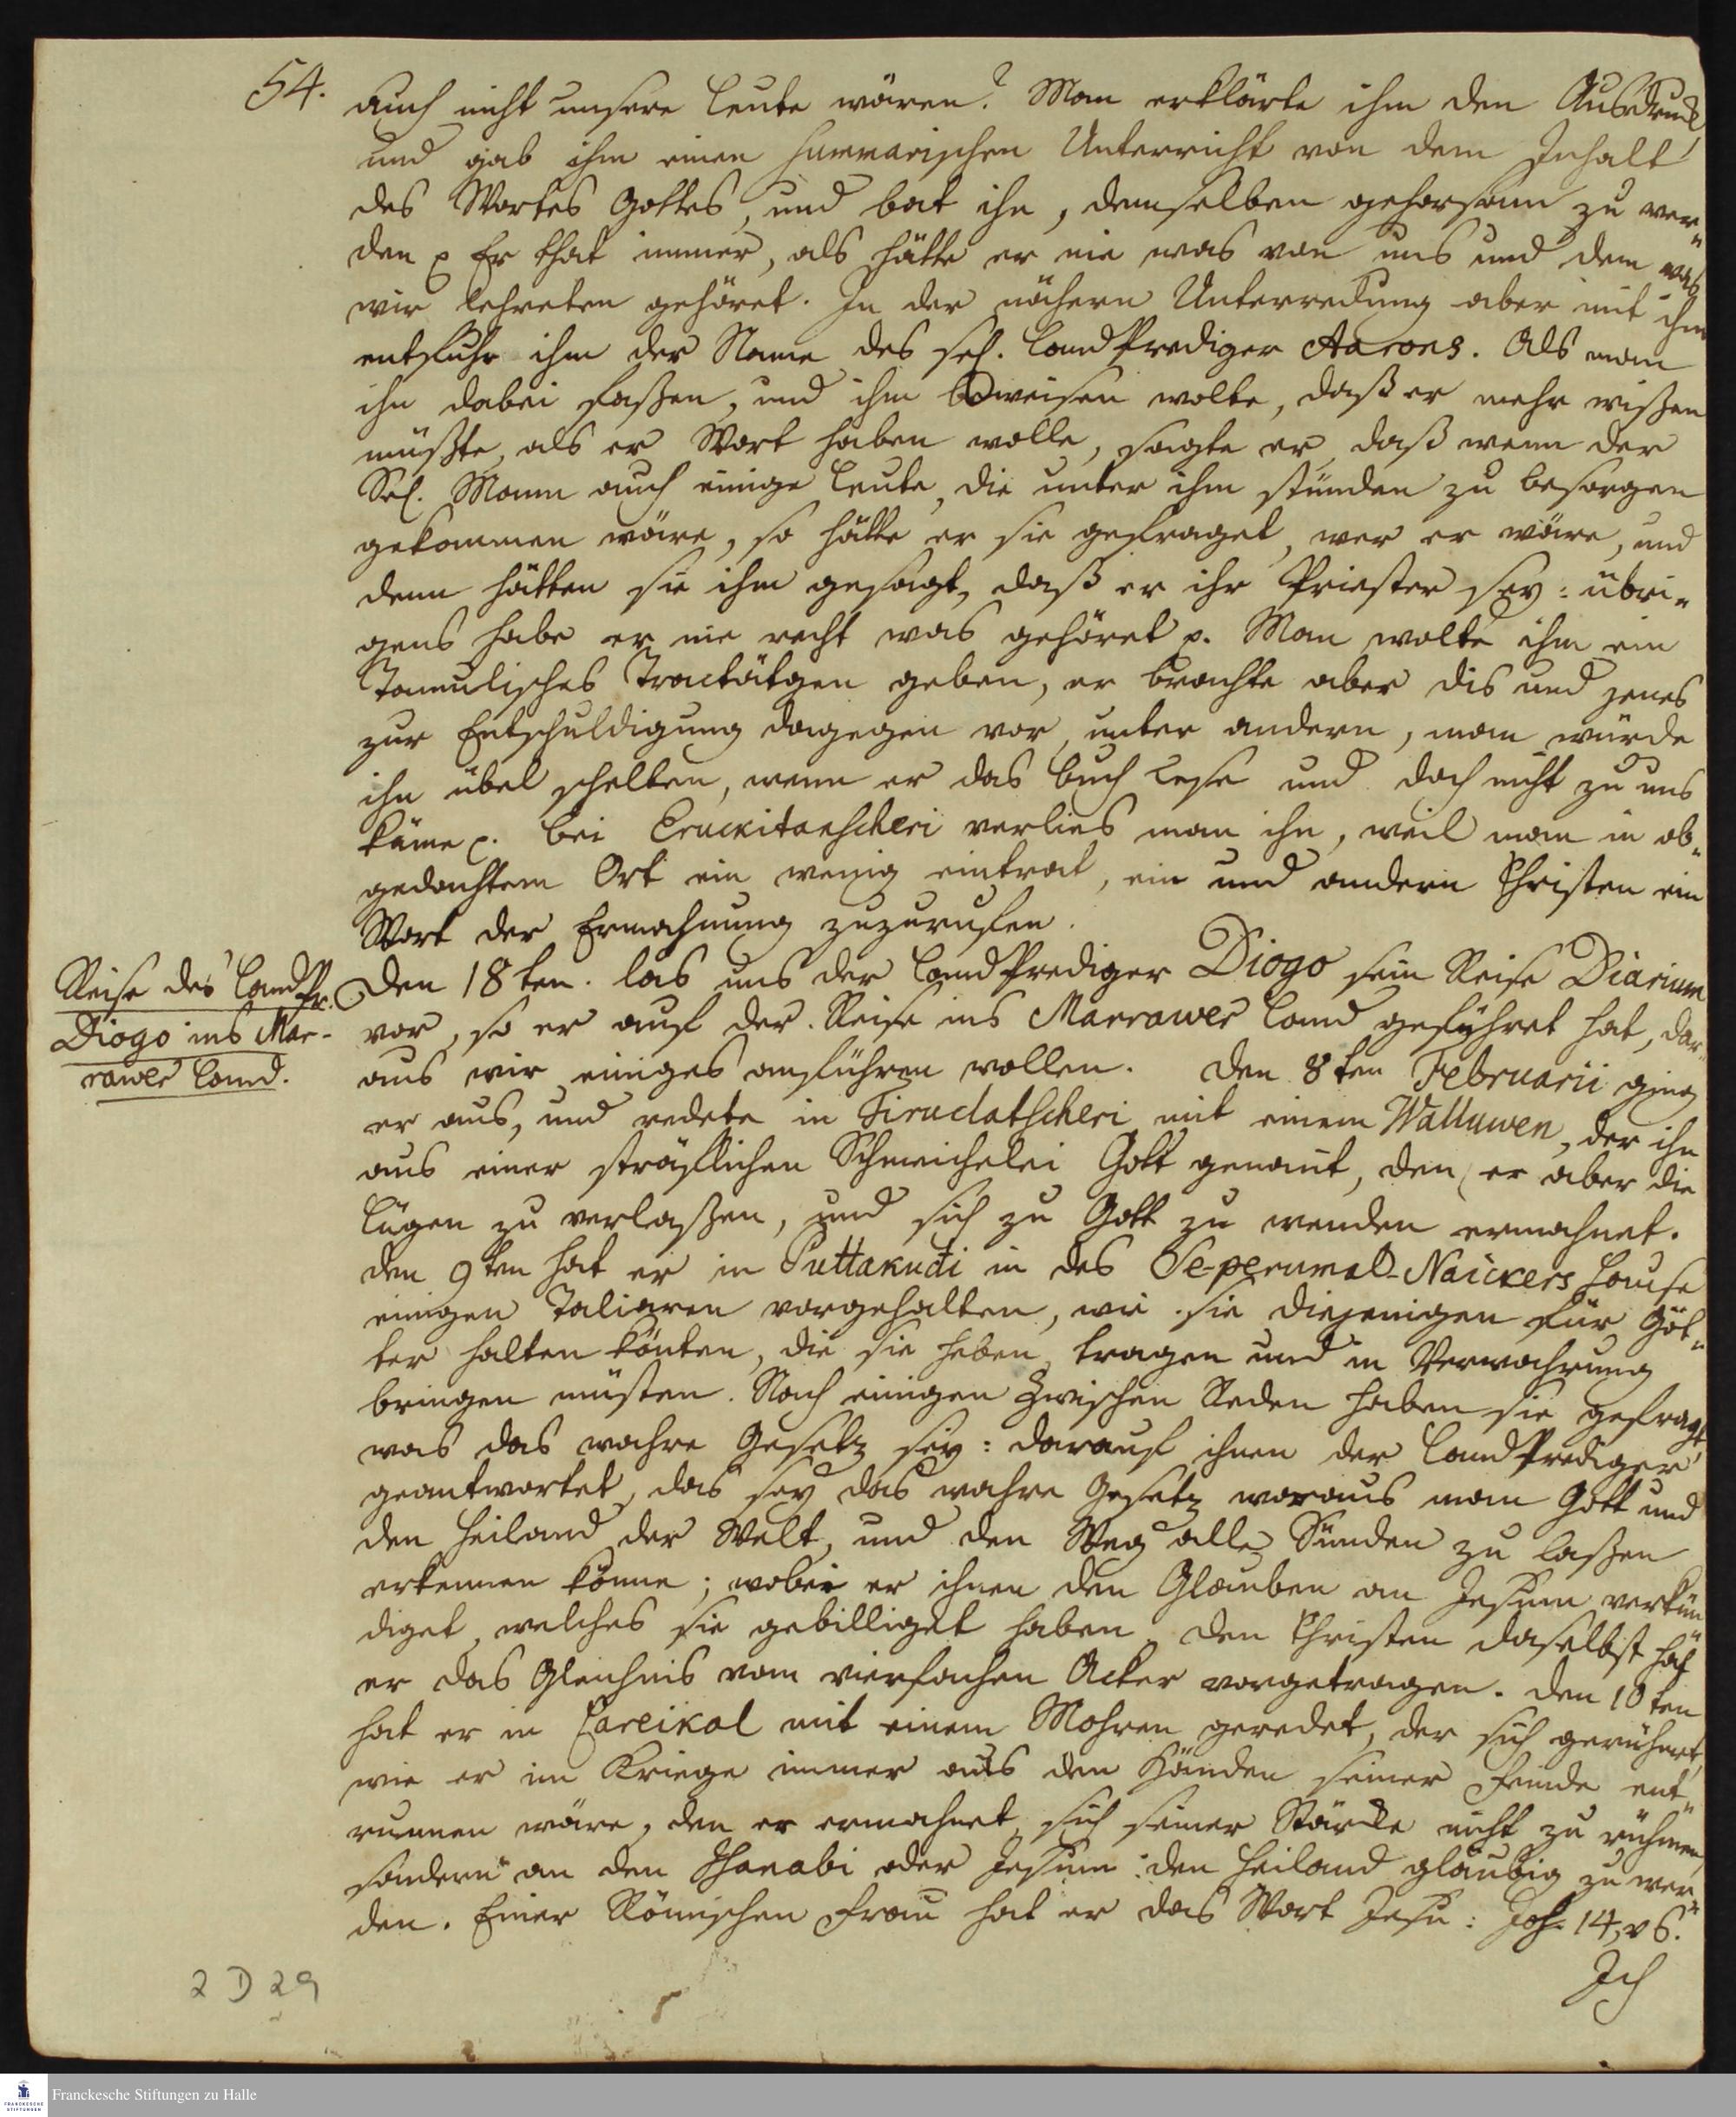 54.
auch nicht unsere Leute wären? Man erklärte ihm den Ausdruck
und gab ihm einen summarischen Unterricht von dem Inhalt
des Wortes Gottes, und bat ihn, demselben gehorsam zu wer-
den p Er that immer, als hätte er nie was von uns und dem was
wir lehreten gehöret. In der nähern Unterredung aber mit ihm
entfuhr ihm der Name des sel. Land Prediger Aarons. Als man
ihn dabei faßen, und ihm beweisen wolte, daß er mehr wißen
müßte, als er Wort haben wolle, sagte er, daß wenn der
Sel. Mann auch einige Leute, die unter ihm stünden zu besorgen
gekommen wäre, so hätte er sie gefraget, wer er wäre, und
denn hätten sie ihm gesagt, daß er ihr Priester sey: übri-
gens habe er nie recht was gehöret p. Man wolte ihm ein
Tamulisches Tractätgen geben, er brachte aber dis und jenes
zur Entschuldigung dagegen vor, unter andern, man würde
ihn übel schelten, wenn er das Buch lese und doch nicht zu uns
käme p. Bei Eruckitanscheri verlies man ihn, weil man in ob-
gedachtem Ort ein wenig eintrat, ein und andern Christen ein
Wort der Ermahnung zuzurufen.
Reise des Land Pr.
Diogo ins Mar-
rawer Land.
Den 18ten. las uns der Land Prediger Diogo sein Reise Diarium
vor, so er auf der Reise ins Marrawer Land geführet hat, dar-
aus wir einiges anführen wollen. Den 8ten Februarii ging
er aus, und redete in Tirudatscheri mit einem Walluwen, der ihn
aus einer sträflichen Schmeichelei Gott genant, den er aber die
Lügen zu verlaßen, und sich zu Gott zu wenden ermahnet.
den 9ten hat er in Puttakudi in des Se-perumal-Naickers Hause
einigen Taliaren vorgehalten, wie sie diejenigen für Göt-
ter halten könten, die sie heben, tragen und in Verwahrung
bringen müsten. Nach einigen Zwischen Reden haben sie gefragt
was das wahre Gesetz sey: darauf ihnen der Land Prediger
geantwortet, das sey das wahre Gesetz woraus man Gott und
den Heiland der Welt, und den Weg alle Sünden zu laßen
erkennen könne; wobei er ihnen den Glauben an Jesum verkün-
diget, welches sie gebilliget haben. Den Christen daselbst hat
er das Gleichnis vom vierfachen Acker vorgetragen. den 10ten
hat er in Careikal mit einem Mohren geredet, der sich gerühmet,
wie er im Kriege immer aus den Händen seiner Feinde ent-
runnen wäre, den er ermahnet, sich seiner Stärcke nicht zu rühmen,
sondern an den Isanabi oder Jesum den Heiland gläubig zu wer-
den. Einer Römischen Frau hat er das Wort Jesu: Joh. 14, v 6.
Ich
2 D 29
Franckesche Stiftungen zu Halle
FRANCKESCHE
STIFTUNGEN